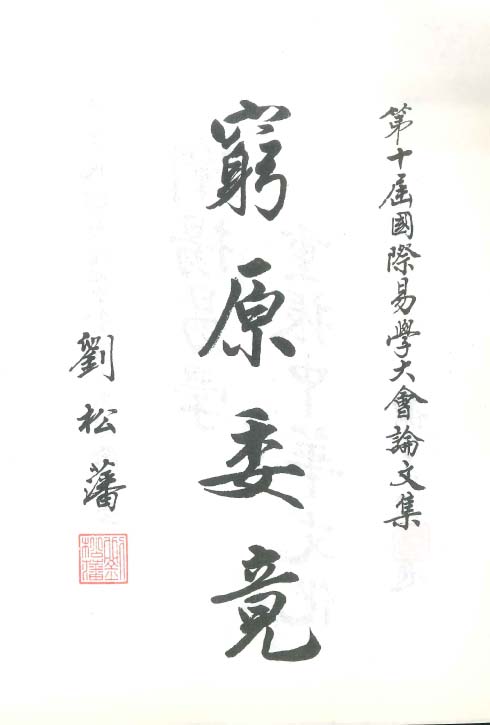 第十屆國際易學大會論文集
窮原委竟
劉松藩